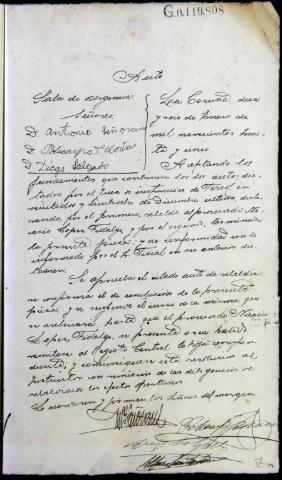 G.0.119.808
Auto
Sala de urgencia
Señores
D Antonio Señoras
D Policarpo F. Costas
D Diego Salgado
La Coruña diez
y seis de Enero de
mil novecientos
y uno
Aceptando los
fundamentos que contienen los dos autos dic-
tados por el Juez de instrucción de Ferrol en
veintidos y de Diciembre último decla-
rando, por el primero, rebelde al procesado
Lopez Fidalgo y por el segundo, terminada
la presente pieza; y de conformidad con lo
informado por el S. Fiscal en su anterior dic-
tamen.
Se aprueba el citado auto de rebeldia,
se confirma el de conclusión de la presente
pieza y se suspende el curso de la misma, que
se archivará hasta que el procesado
Lopez Fidalgo, se presente o sea habido
remitase al Registro Central la hoja correspon-
diente, y comuniquese esta resolución al
instructor con remisión de las diligencias de
rebeldia a los efectos oportunos.
Lo acordaron y firman los Señores del margen.